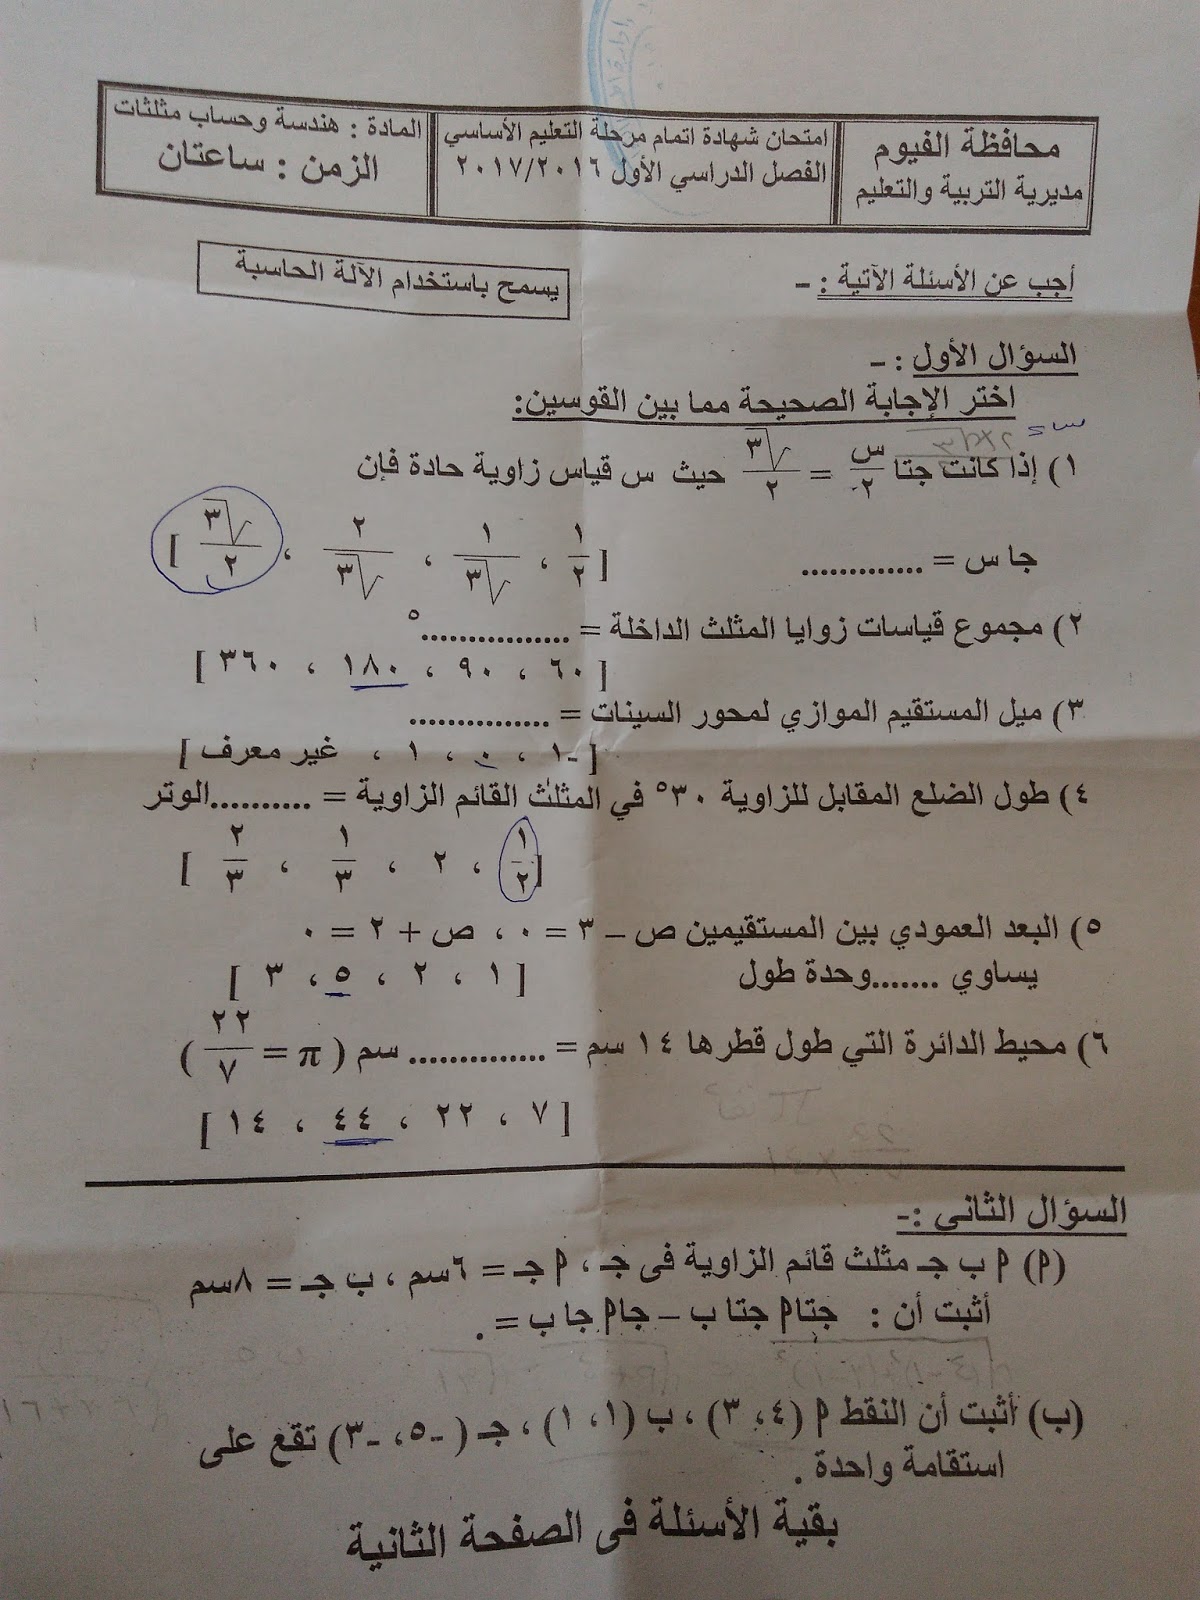 محافظة الفيوم
مديرية التربية والتعليم
امتحان شهادة اتمام مرحلة التعليم الأساسي
الفصل الدراسي الأول ٢٠١٧/٢٠١٦
المادة : هندسة وحساب مثلثات
الزمن : ساعتان
أجب عن الأسئلة الآتية : -
يسمح باستخدام الآلة الحاسبة
السؤال الأول : -
اختر الإجابة الصحيحة مما بين القوسين:
١) إذا كانت جتا س/٢ = √٣/٢ حيث س قياس زاوية حادة فإن
جا س = ............. [ ١/٢ ، ١/√٣ ، ٢/√٣ ، √٣/٢ ]
٢) مجموع قياسات زوايا المثلث الداخلة = ................°
[ ٦٠ ، ٩٠ ، ١٨٠ ، ٣٦٠ ]
٣) ميل المستقيم الموازي لمحور السينات = ...............
[ -١ ، ٠ ، ١ ، غير معرف ]
٤) طول الضلع المقابل للزاوية ٣٠° في المثلث القائم الزاوية = ..........الوتر
[ ١/٢ ، ٢ ، ١/٣ ، ٢/٣ ]
٥) البعد العمودي بين المستقيمين ص – ٣ = ٠ ، ص + ٢ = ٠
يساوي .......وحدة طول [ ١ ، ٢ ، ٥ ، ٣ ]
٦) محيط الدائرة التي طول قطرها ١٤ سم = .............. سم ( π = ٢٢/٧ )
[ ٧ ، ٢٢ ، ٤٤ ، ١٤ ]
السؤال الثانى :-
(أ) أ ب جـ مثلث قائم الزاوية فى جـ ، أ جـ = ٦سم ، ب جـ = ٨سم
أثبت أن : جتا أ جتا ب – جا أ جا ب = ٠
(ب) أثبت أن النقط أ (٤، ٣) ، ب (١، ١) ، جـ ( -٥، -٣) تقع على
استقامة واحدة .
بقية الأسئلة فى الصفحة الثانية